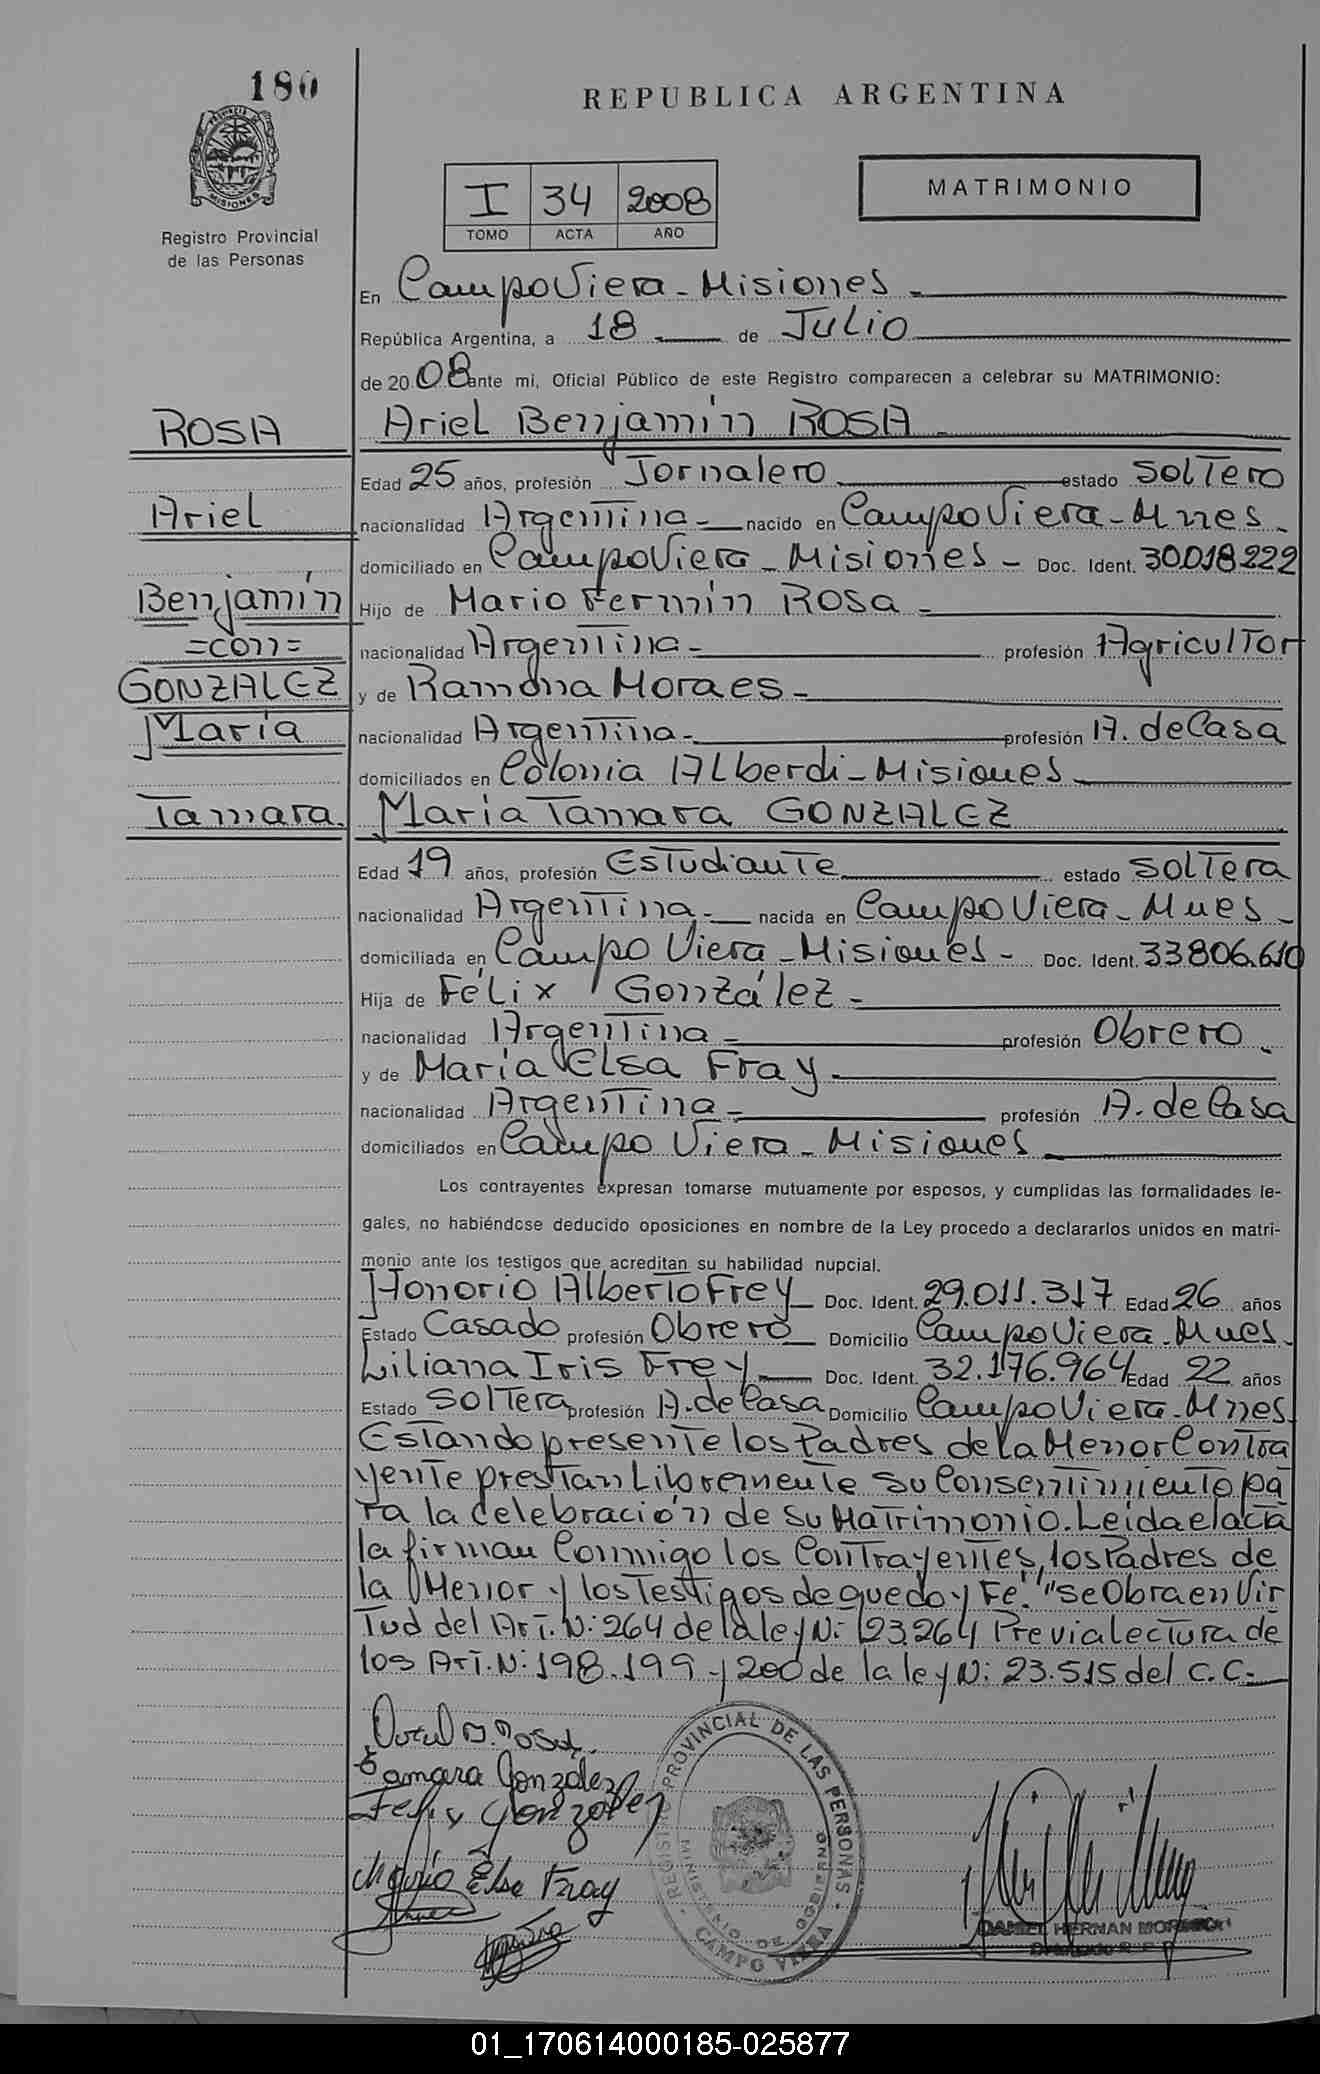 180
REPUBLICA ARGENTINA
PROVINCIA DE
MISIONES
Registro Provincial
de las Personas
I 34 2008
TOMO ACTA AÑO
MATRIMONIO
En Campo Viera - Misiones -
República Argentina, a 18 de Julio
de 2008 ante mi, Oficial Público de este Registro comparecen a celebrar su MATRIMONIO:
ROSA Ariel Benjamín ROSA
Edad 25 años, profesión Jornalero estado Soltero
Ariel nacionalidad Argentina - nacido en Campo Viera - Mnes -
domiciliado en Campo Viera - Misiones - Doc. Ident. 30018222
Benjamín Hijo de Mario Fermín Rosa -
=con= nacionalidad Argentina - profesión Agricultor
GONZALEZ y de Ramona Moraes -
María nacionalidad Argentina - profesión A. de Casa
domiciliados en Colonia Alberdi - Misiones
Tamara. María Tamara GONZALEZ
Edad 19 años, profesión Estudiante estado Soltera
nacionalidad Argentina - nacida en Campo Viera - Mnes -
domiciliada en Campo Viera - Misiones - Doc. Ident. 33806.610
Hija de Félix González -
nacionalidad Argentina - profesión Obrero -
y de María Elsa Fray -
nacionalidad Argentina - profesión A. de Casa
domiciliados en Campo Viera - Misiones
Los contrayentes expresan tomarse mutuamente por esposos, y cumplidas las formalidades le-
gales, no habiéndose deducido oposiciones en nombre de la Ley procedo a declararlos unidos en matri-
monio ante los testigos que acreditan su habilidad nupcial.
Honorio Alberto Frey Doc. Ident. 29.011.317 Edad 26 años
Estado Casado profesión Obrero Domicilio Campo Viera - Mnes -
Liliana Iris Frey Doc. Ident. 32.176.964 Edad 22 años
Estado Soltera profesión A. de Casa Domicilio Campo Viera - Mnes
Estando presente los Padres de la Menor Contra
yente prestan Libremente su Consentimiento pa
ra la celebración de su Matrimonio. Leida el acta
la firman Conmigo los Contrayentes, los Padres de
la Menor y los Testigos de que doy Fe. "Se Obra en Vir
tud del Art. N: 264 de la ley N: 23264 Previa lectura de
los Art. N: 198. 199 y 200 de la ley N: 23.515 del C.C.-
Tamara Gonzalez
Felix Gonzalez
María Elsa Fray
REGISTRO PROVINCIAL DE LAS PERSONAS
MINISTERIO DE GOBIERNO
CAMPO VIERA
DANIEL HERNAN
01_170614000185-025877